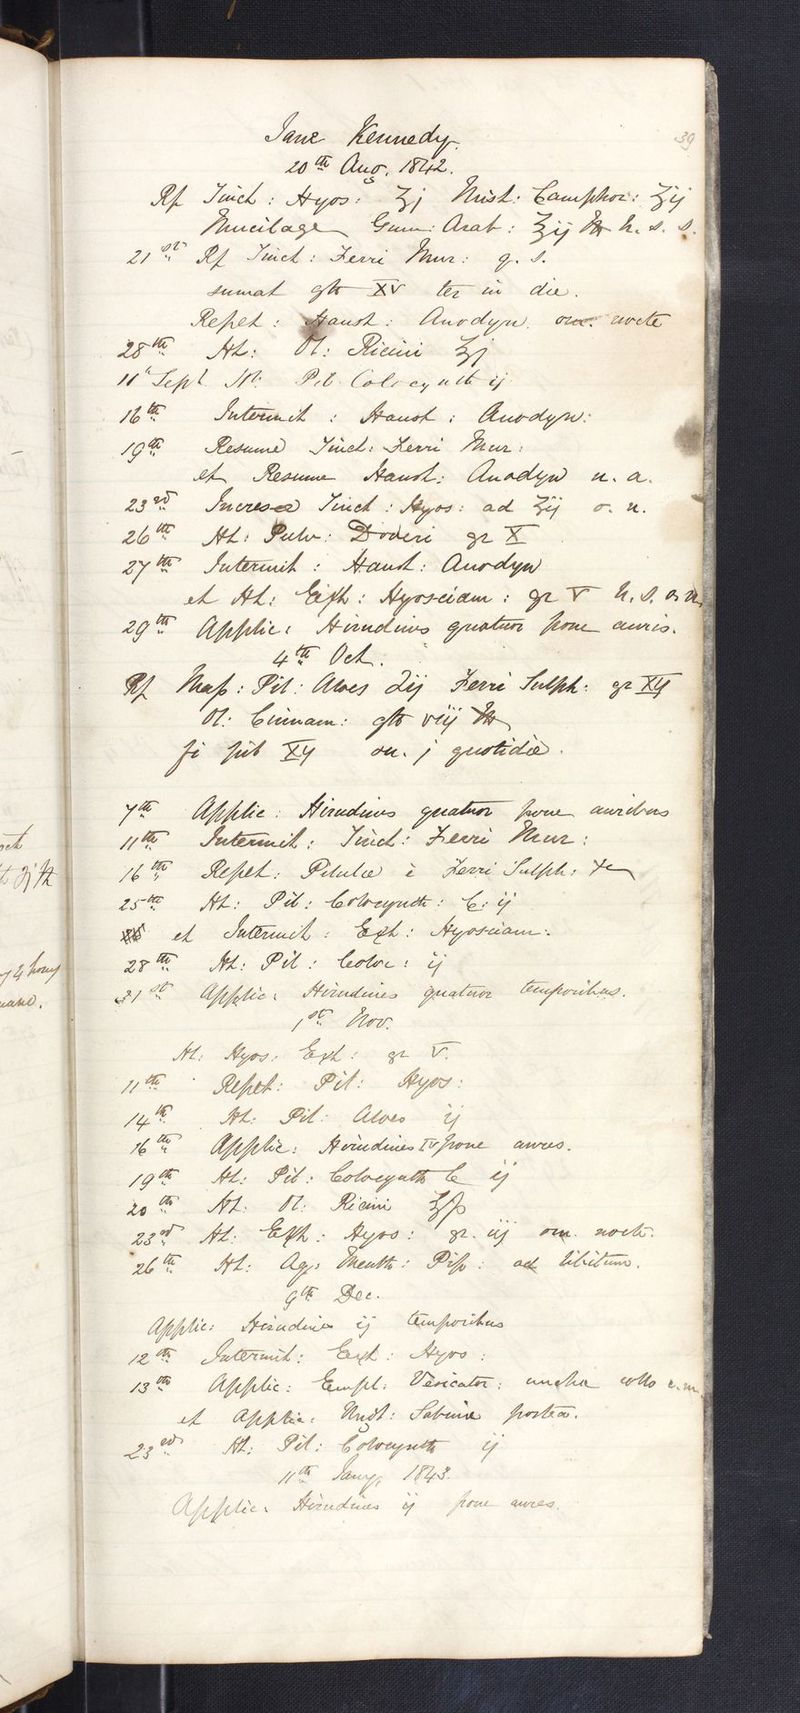 39
Jane Kennedy.
20th Aug. 1842.
Rx Tinct: Hyos: ʒj Mist: Camphor: ʒij
Mucilage Gum: Arab: ʒij h. s. s.
21st Rx Tinct: Ferri Mur: q. s.
sumat gtt XV ter in die.
Repet: Haust: Anodyn. om. nocte
28th Ht: Ol: Ricini ℥j
11th Sept Ht: Pil. Colocynth ij
16th Intermit: Haust: Anodyn:
19th Resume Tinct: Ferri Mur:
et Resume Haust: Anodyn u. a.
23rd Increse Tinct: Hyos: ad ʒij o. n.
26th Ht: Pulv: Doveri gr X
27th Intermit: Haust: Anodyn
et Ht: Ext: Hyosciam: gr V h. s. o. n.
29th Applic: Hirudines quatuor pone auris.
4th Oct.
Rx Mass: Pil: Aloes ʒij Ferri Sulph: gr XIJ
Ol: Cinnam: gtt viij
fi pil XIJ su. j quotidie.
7th Applic: Hirudines quatuor pone auribus
11th Intermit: Tinct: Ferri Mur:
16th Repet: Pilulæ è Ferri Sulph: &c
25th Ht: Pil: Colocynth: C: ij
et Intermit: Ext: Hyosciam:
28th Ht: Pil: Coloc: ij
31st Applic: Hirudines quatuor temporibus.
1st Nov.
Ht: Hyos: Ext: gr V.
11th Repet: Pil: Hyos:
14th Ht: Pil: Aloes ij
16th Applic: Hirudines IV pone aures.
19th Ht: Pil: Colocynth C ij
20th Ht: Ol: Ricini ℥ß
23rd Ht: Ext: Hyos: gr. iij om. nocte.
26th Ht: Aq: Menth: Pip: ad libitum.
9th Dec.
Applic: Hirudines ij temporibus
12th Intermit: Ext: Hyos:
13th Applic: Empl: Vesicator: nucha collo
et Applic: Ungt: Sabinæ postea.
23rd Ht: Pil: Colocynth ij
11th Jany. 1843.
Applic: Hirudines ij pone aures.